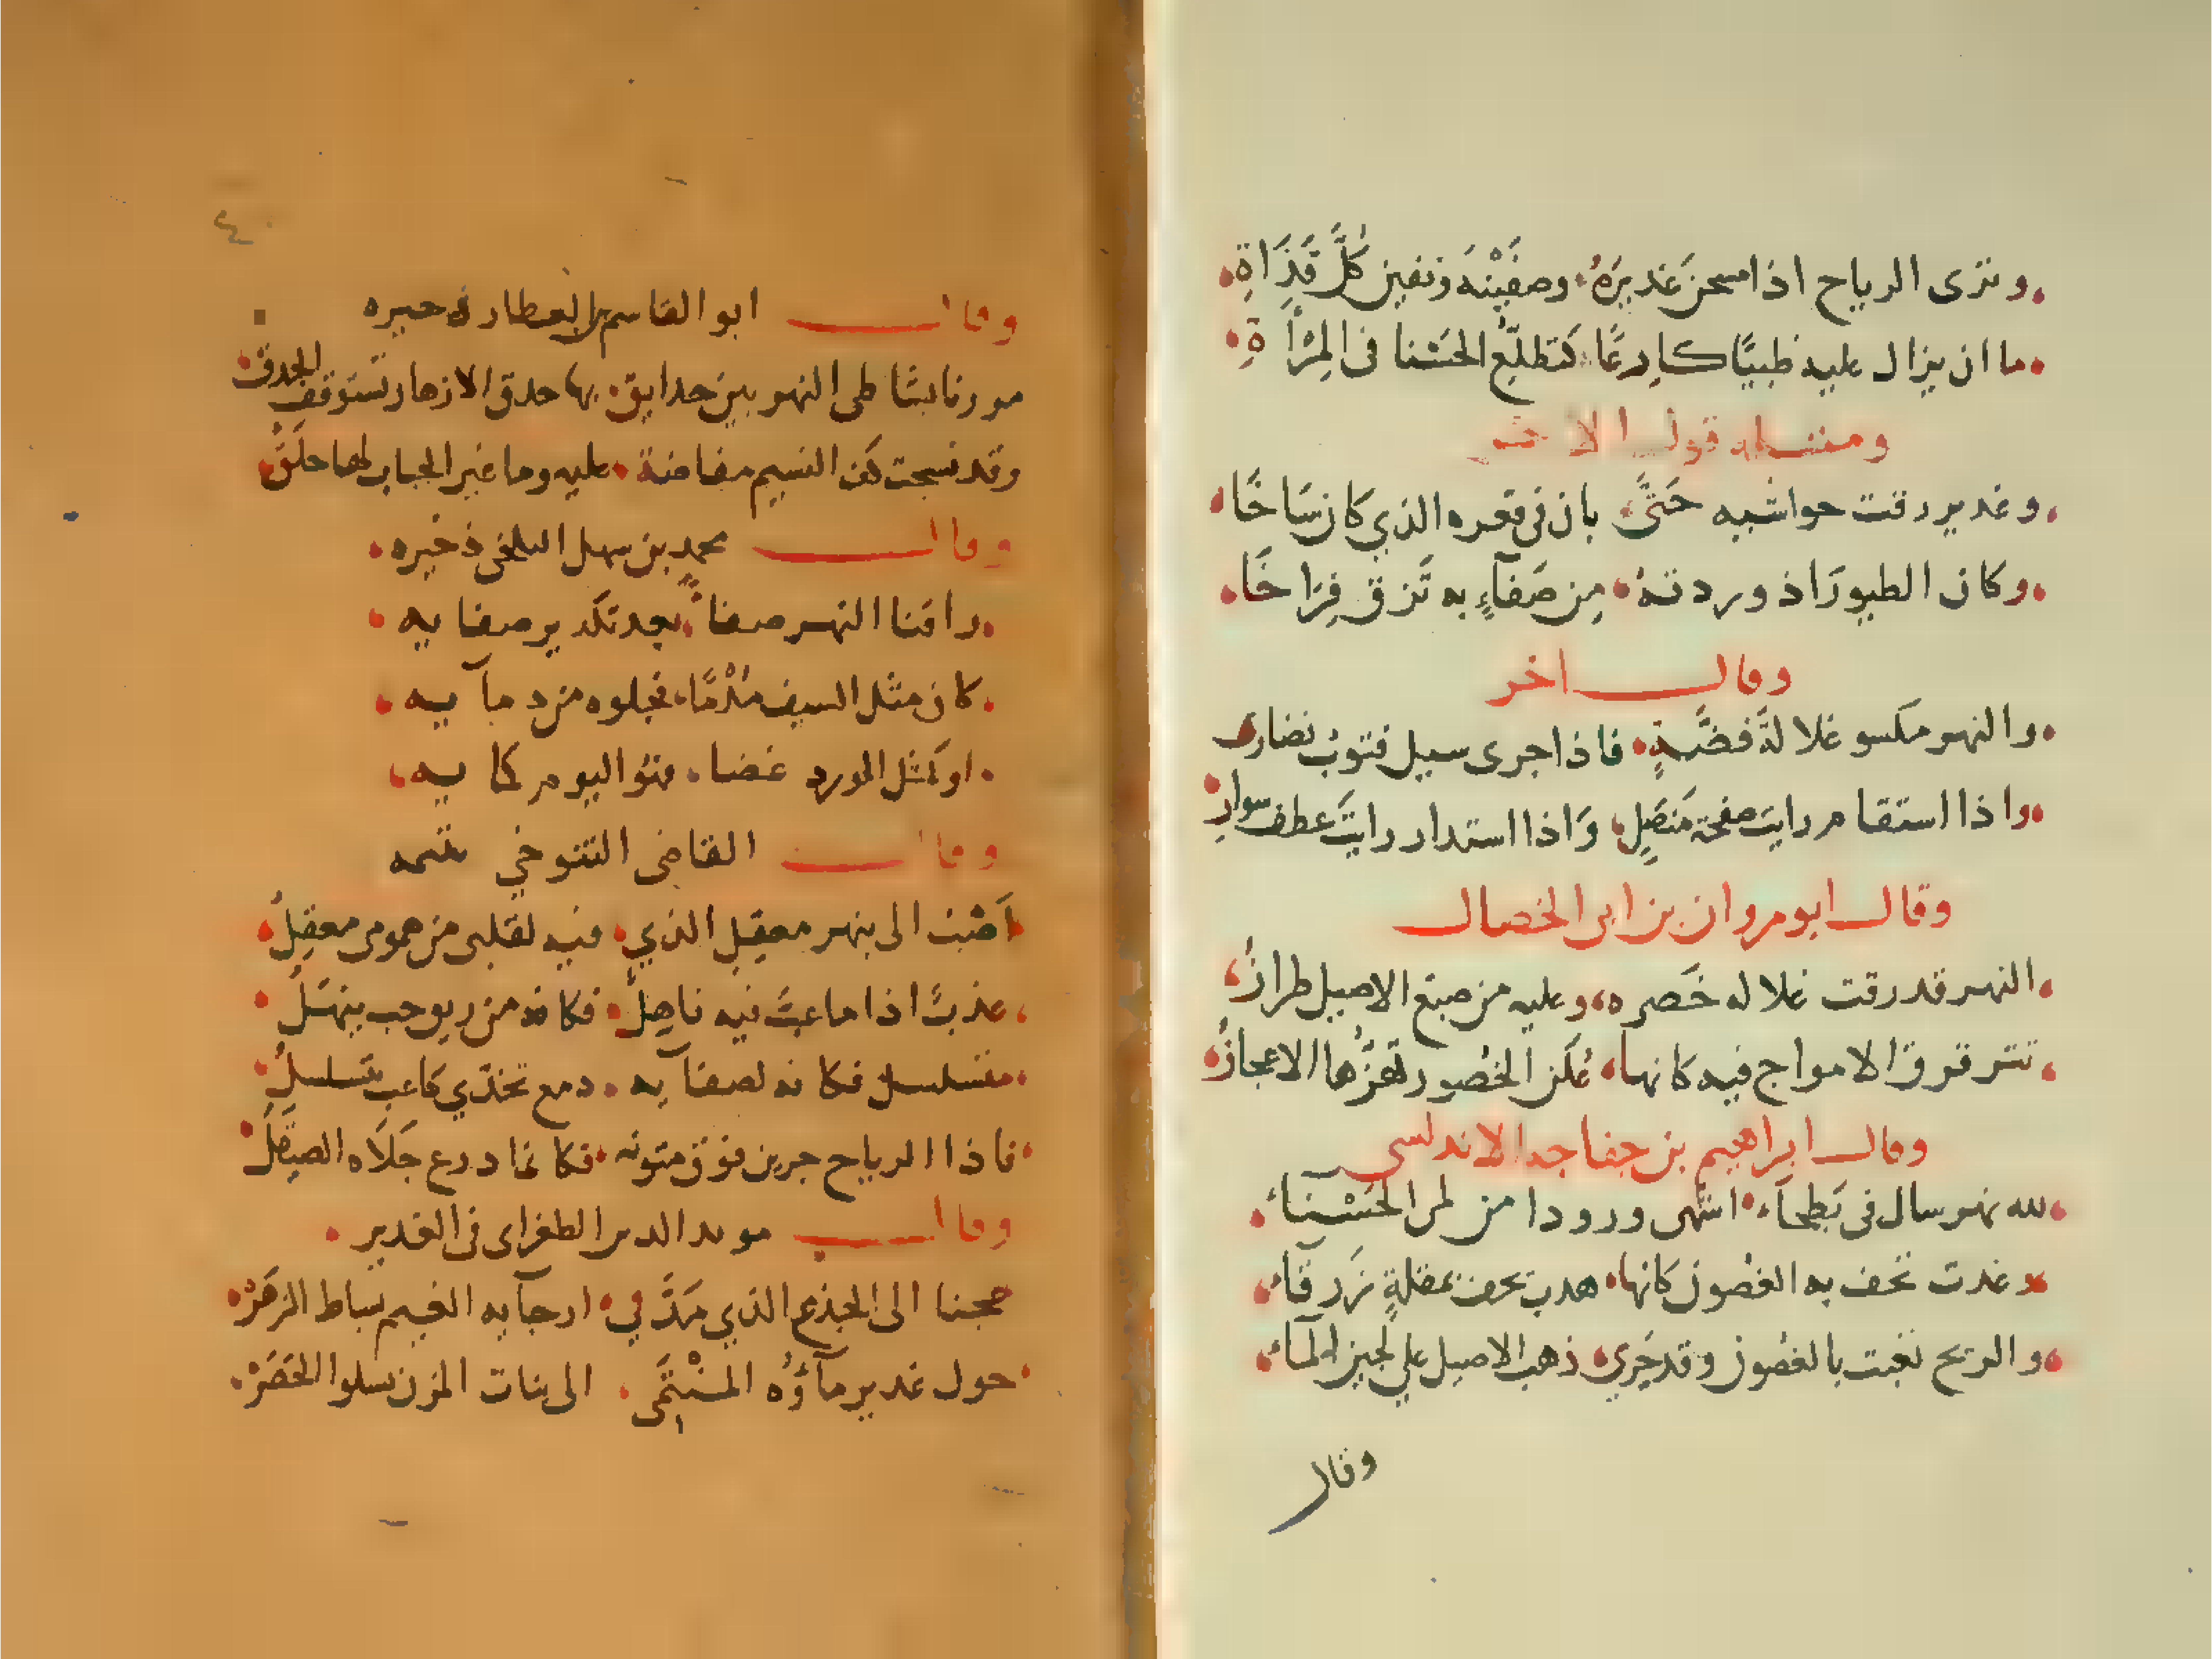 وترى الرياح اذا مسحن غديرَهُ وصفيْنَهَ ونفين كلَّ قَذَاةِ
ما ان يزال عليه ظبيًا كارعًا كتطلّع الحَسْنا في المِرْأةِ
ومثله قول الاخر
وغدير رقت حواشيه حَتَّى بان في قعره الذي كان سَاخًا
وكان الطيورَ اذ وردتهُ مِن صَفآءٍ به تَزق فِرَاخًا
وقال اخر
والنهر مكسو غلالةَ فضَّةٍ فاذا جرى سيل فثوب نضار
واذا استقام رايت صفحة مَنصَلٍ وَاذا استدار رايتَ عطف سوارِ
وقال ابو مروان بن ابي الخصال
النهر قد رقت غلاله خَصره وعليه من صبغ الاصيل طرازُ
تترقرق الامواج فيه كانها عُكَن الخُصور تهَزُّها الاعجازُ
وقال ابراهيم بن خفاجه الاندلسي
لله نهر سال في بَطحآء اشهى ورودا من لمى الحَسْنآء
وغدت تحف به الغصُون كانها هدب تحف بمقلةٍ زَرقآء
والريح تعبث بالغصُون وقد جَرى ذهب الاصيل علي لجين المآء
وقال
٤٠
وقال ابو القاسم بن العطار في حبره
مررنا بشاطي النهر بين حدايق بها حدق الازهار تستوقف الحدق
وقد نسجت كف النسيم مفاضة عليه وما غير الحباب لها حلَقُ
وقال محمد بن سهل البلخي ذخيره
راقنا النهر صفاءً بعد تكدير صفايه
كان مثل السيف مُدْمًا فجلوه من دمآيه
او كمثل الورد غضا فهُو اليوم كمايه
وقال القاضي التنوخي يتيمه
اَحْبب الى بنهر معقِل الذي فيه لقلبي من همومي معقِلُ
عذبٌ اذا ما عبَّ فيه ناهِلٌ فكانه من ريق حب ينهَلُ
متسلسل فكانه لصفآيه دمع بخدّي كاعب يتسلسلُ
فاذا الرياح جرين فوق متونه فكانما درع جَلَاه الصيقَلُ
وقال مويد الدين الطغراي في الغدير
عجنا الى الجذع الذي مَدَّ في ارجآيه الغيم بساط الزهَرْ
حول غدير مآؤُه المنْتمَى الى بنات المزن يسلوا الخَصَرْ